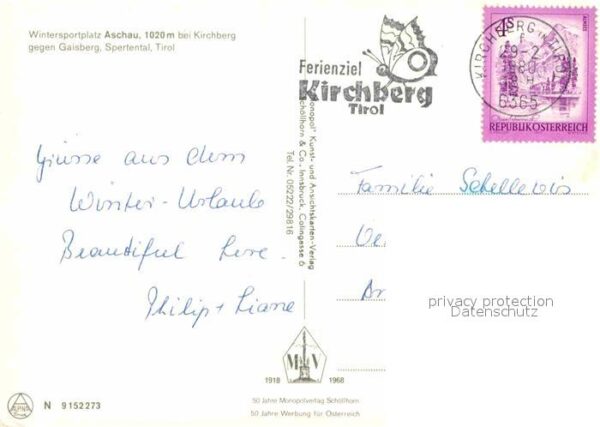 Wintersportplatz Aschau, 1020 m bei Kirchberg
gegen Gaisberg, Spertental, Tirol
Grüsse aus dem
Winter-Urlaub
Beautiful here.
Philip + Liane
N 9152273
Monopol" Kunst- und Ansichtskarten-Verlag
Schöllhorn & Co., Innsbruck, Colingasse 6
Tel. Nr. 05222/29816
MV
1918 1968
50 Jahre Monopolverlag Schöllhorn
50 Jahre Werbung für Österreich
Ferienziel
Kirchberg
Tirol
KIRCHBERG IN TIROL
29-2
1980
6365
REPUBLIK ÖSTERREICH
Familie Schellevis
privacy protection
Datenschutz